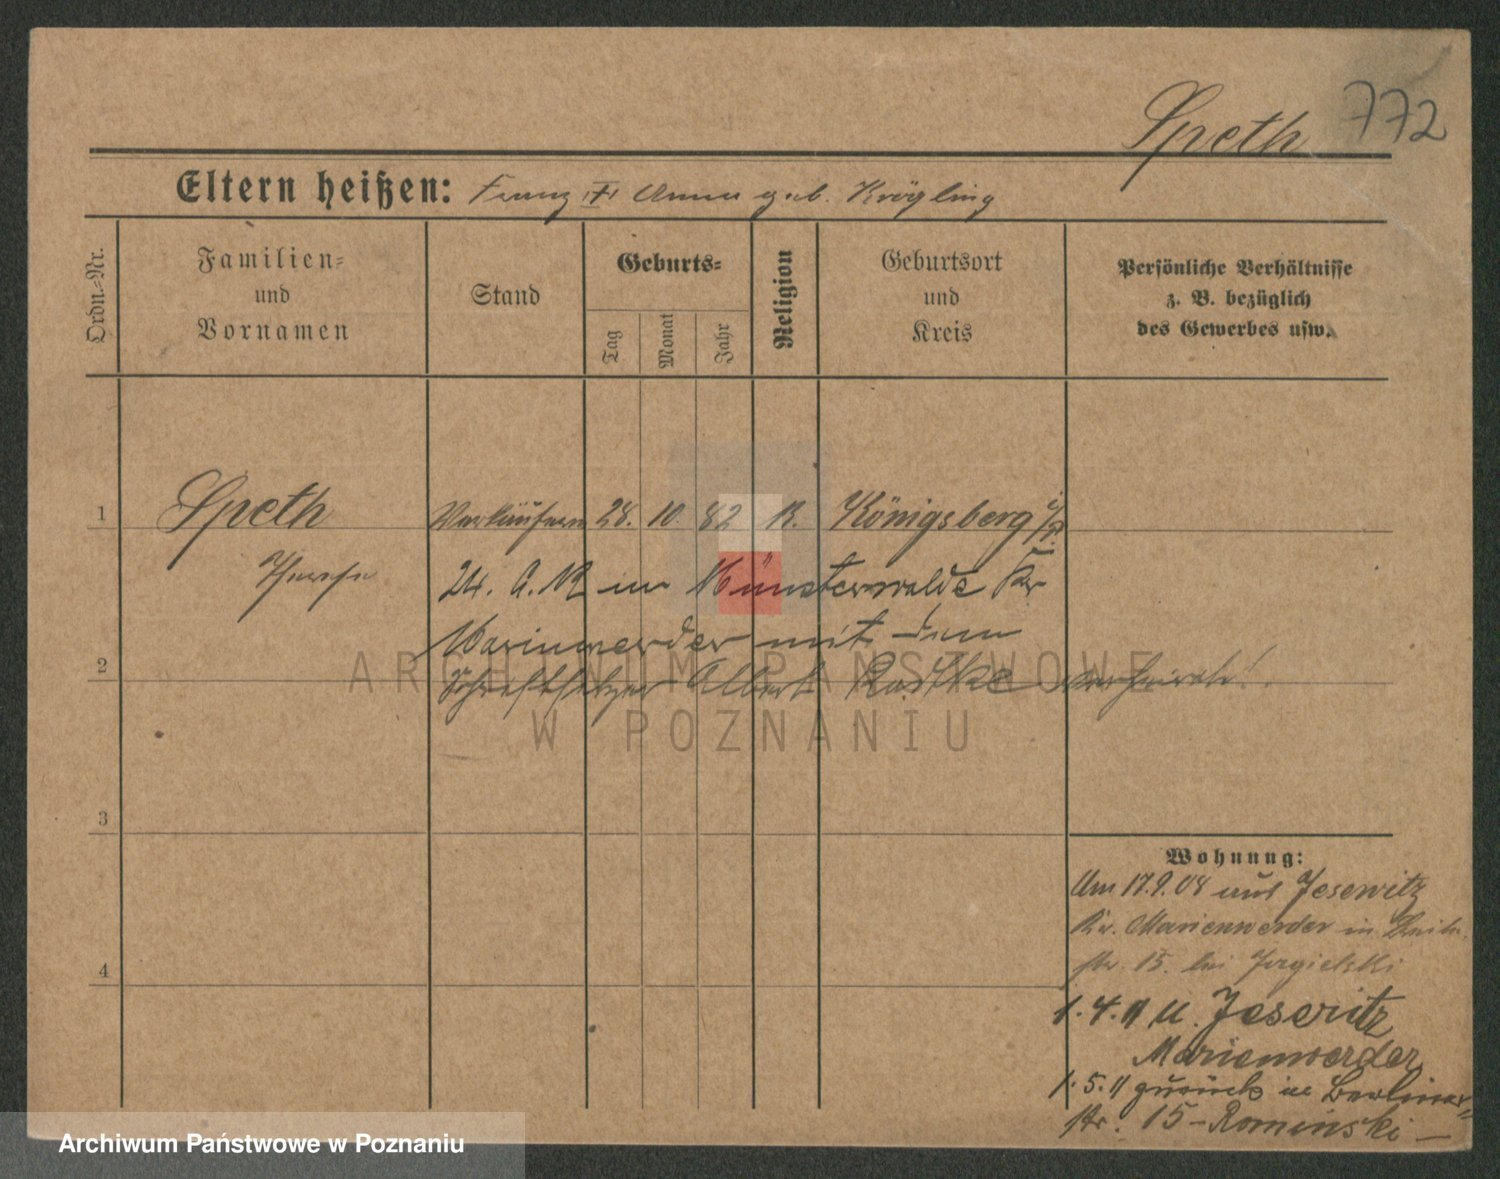 Speth 772
Eltern heißen: Franz Anna geb. Krögling
Ordn.-Nr.
Familien-
und
Vornamen
Stand
Geburts-
Tag
Monat
Jahr
Religion
Geburtsort
und
Kreis
Persönliche Verhältnisse
z. B. bezüglich
des Gewerbes usw.
1 Speth Verkäuferin 28. 10. 82 K. Königsberg i/P.
Therese
24. in Münsterwalde Kr
Marienwerder mit dem
2 Schriftsetzer Albert Radtke verheirath!
ARCHIWUM PAŃSTWOWE
W POZNANIU
3
4
Wohnung:
Am 17.9.08 aus Jesewitz
Kr. Marienwerder in
str. 15. bei
1.4.11 n. Jesewitz
Marienwerder
1.5.11 zurück in Berliner-
str. 15 - Rominski -
Archiwum Państwowe w Poznaniu